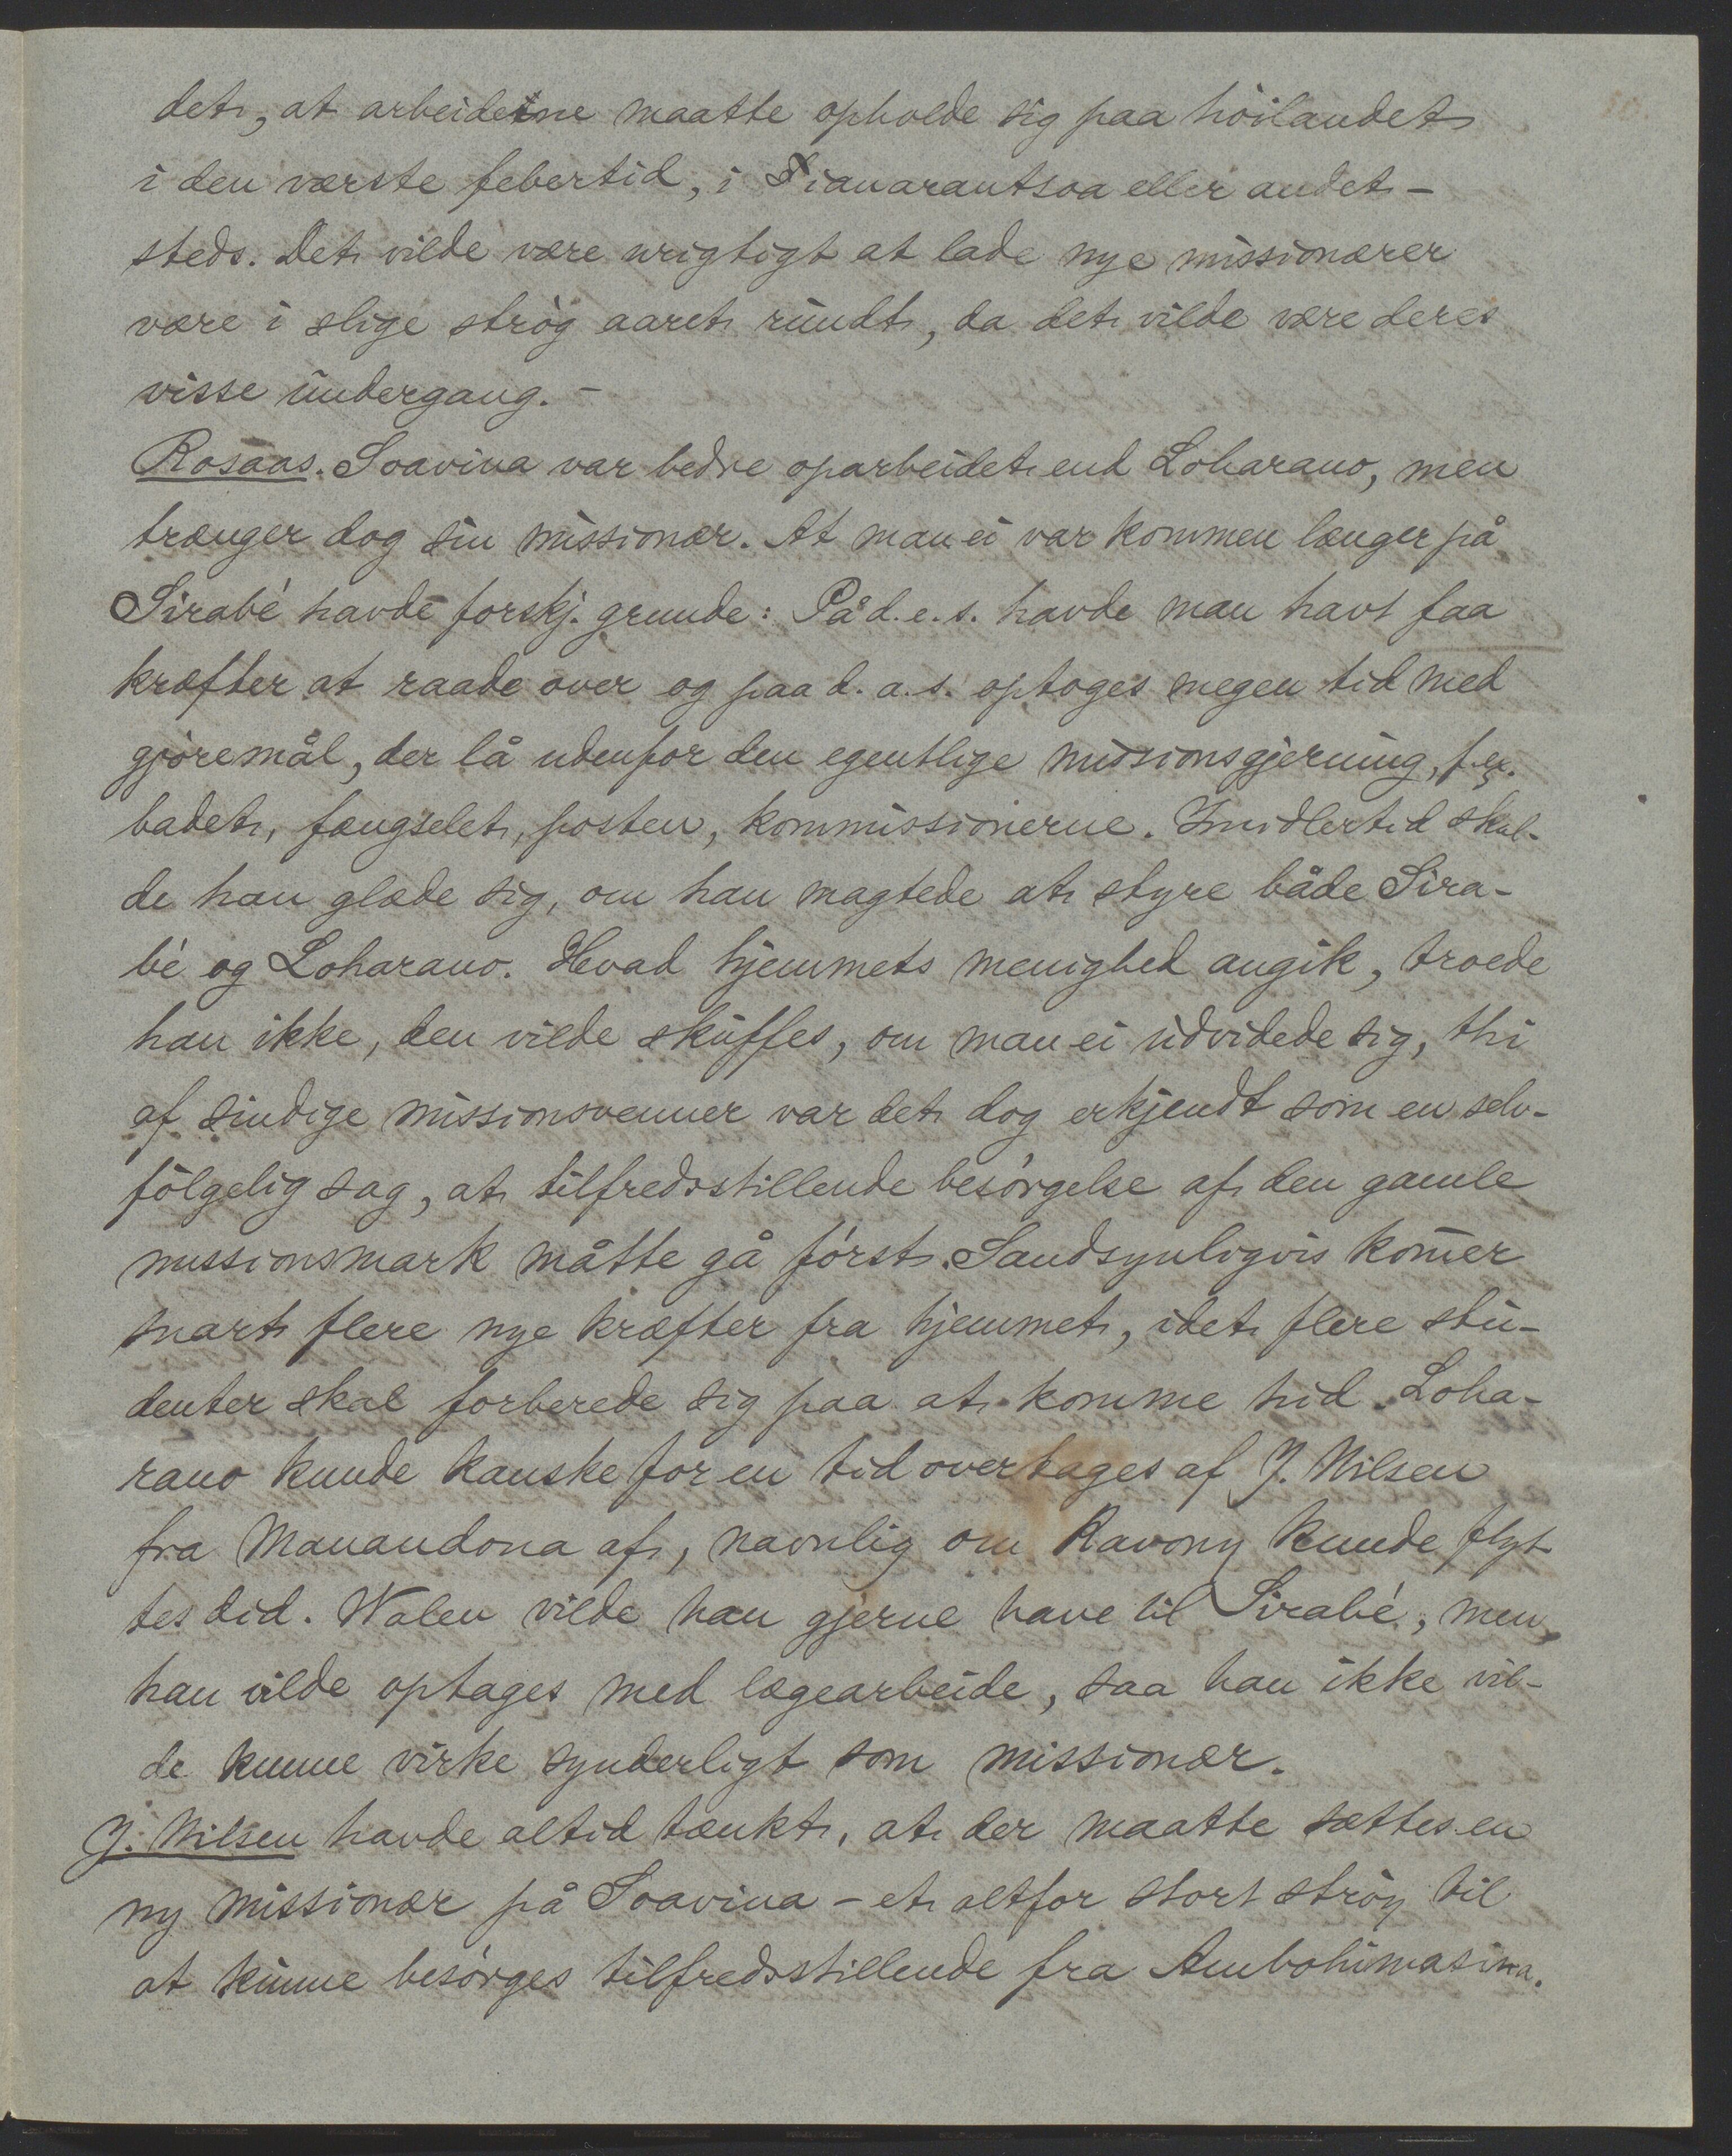 det, at arbeiderne maatte opholde sig paa høilandet
i den værste febertid, i Fianarantsoa eller andet-
steds. Det vilde være urigtigt at lade nye missionærer
være i slige strøg aaret rundt, da det vilde være deres
visse undergang. –
Rosaas. Soavina var bedre oparbeidet end Loharano, men
trænger dog sin missionær. At man ei var kommen længer på
Sirabé havde forskj. grunde: På d. e. s. havde man havt faa
kræfter at raade over og paa d. a. s. optoges megen tid med
gjøremål, der lå udenfor den egentlige missionsgjerning, f.ex.
badet, fængselet, posten, kommissionerne. Imidlertid skul-
de han glæde sig, om han magtede at styre både Sira-
bé og Loharano. Hvad hjemmets menighed angik, troede
han ikke, den vilde skuffes, om man ei udvidede sig, thi
af sindige missionsvenner var det dog erkjendt som en selv-
følgelig sag, at tilfredsstillende besørgelse af den gamle
missionsmark måtte gå først. Sandsynligvis kom̄er
snart flere nye kræfter fra hjemmet, idet flere stu-
denter skal forberede sig paa at komme hid. Loha-
rano kunde kanske for en tid overtages af J. Nilsen
fra Manandona af, navnlig om Ravony kunde flyt
tes did. Walen vilde han gjerne have til Sirabé, men
han vilde optages med lægearbeide, saa han ikke vil-
de kunne virke synderligt som missionær.
J. Nilsen havde altid tænkt, at der maatte sættes en
ny missionær på Soavina – et altfor stort strøg til
at kunne besørges tilfredsstillende fra Ambohimasina.